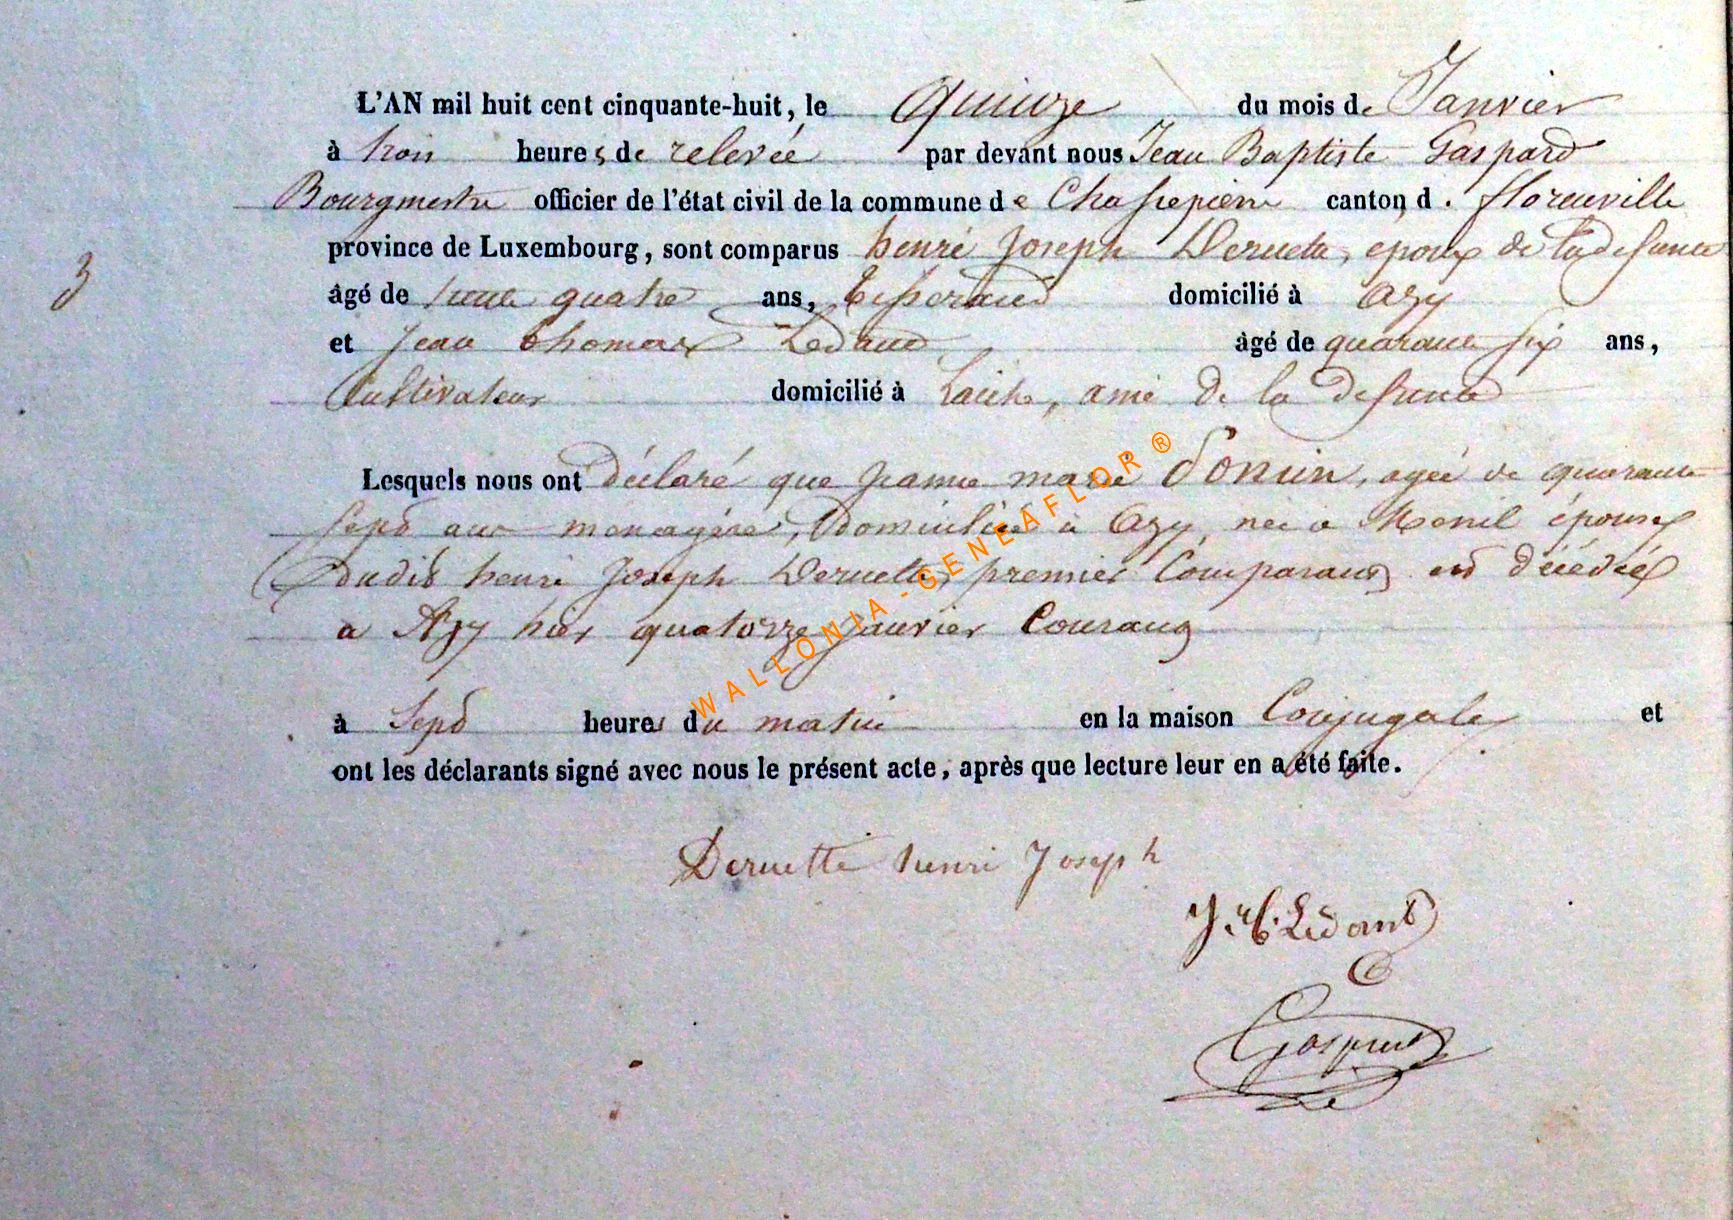 L'AN mil huit cent cinquante-huit, le Quinze du mois de Janvier
à trois heures de relevée par devant nous Jean Baptiste Gaspard
Bourgmestre officier de l'état civil de la commune de Chassepierre canton d. florenville
province de Luxembourg, sont comparus henri Joseph Deruette, epoux de la defunte
3
âgé de trente quatre ans, Tisserand domicilié à Azy
et Jean thomas Ledant âgé de quarante six ans,
Cultivateur domicilié à Laiche, ami de la defunte
Lesquels nous ont déclaré que jeanne marie Ponin, agée de quarante
sept ans menagère, Domiciliée à Azy, nee a Menil épouse
dudit henri Joseph Deruette, premier Comparant est décédée
a Azy hier quatorze janvier Courant
à Sept heures du matin en la maison Conjugale et
ont les déclarants signé avec nous le présent acte, après que lecture leur en a été faite.
WALLONIA - GENEAFLOR ®
Deruette henri Joseph
J. t. Ledant
Gaspard